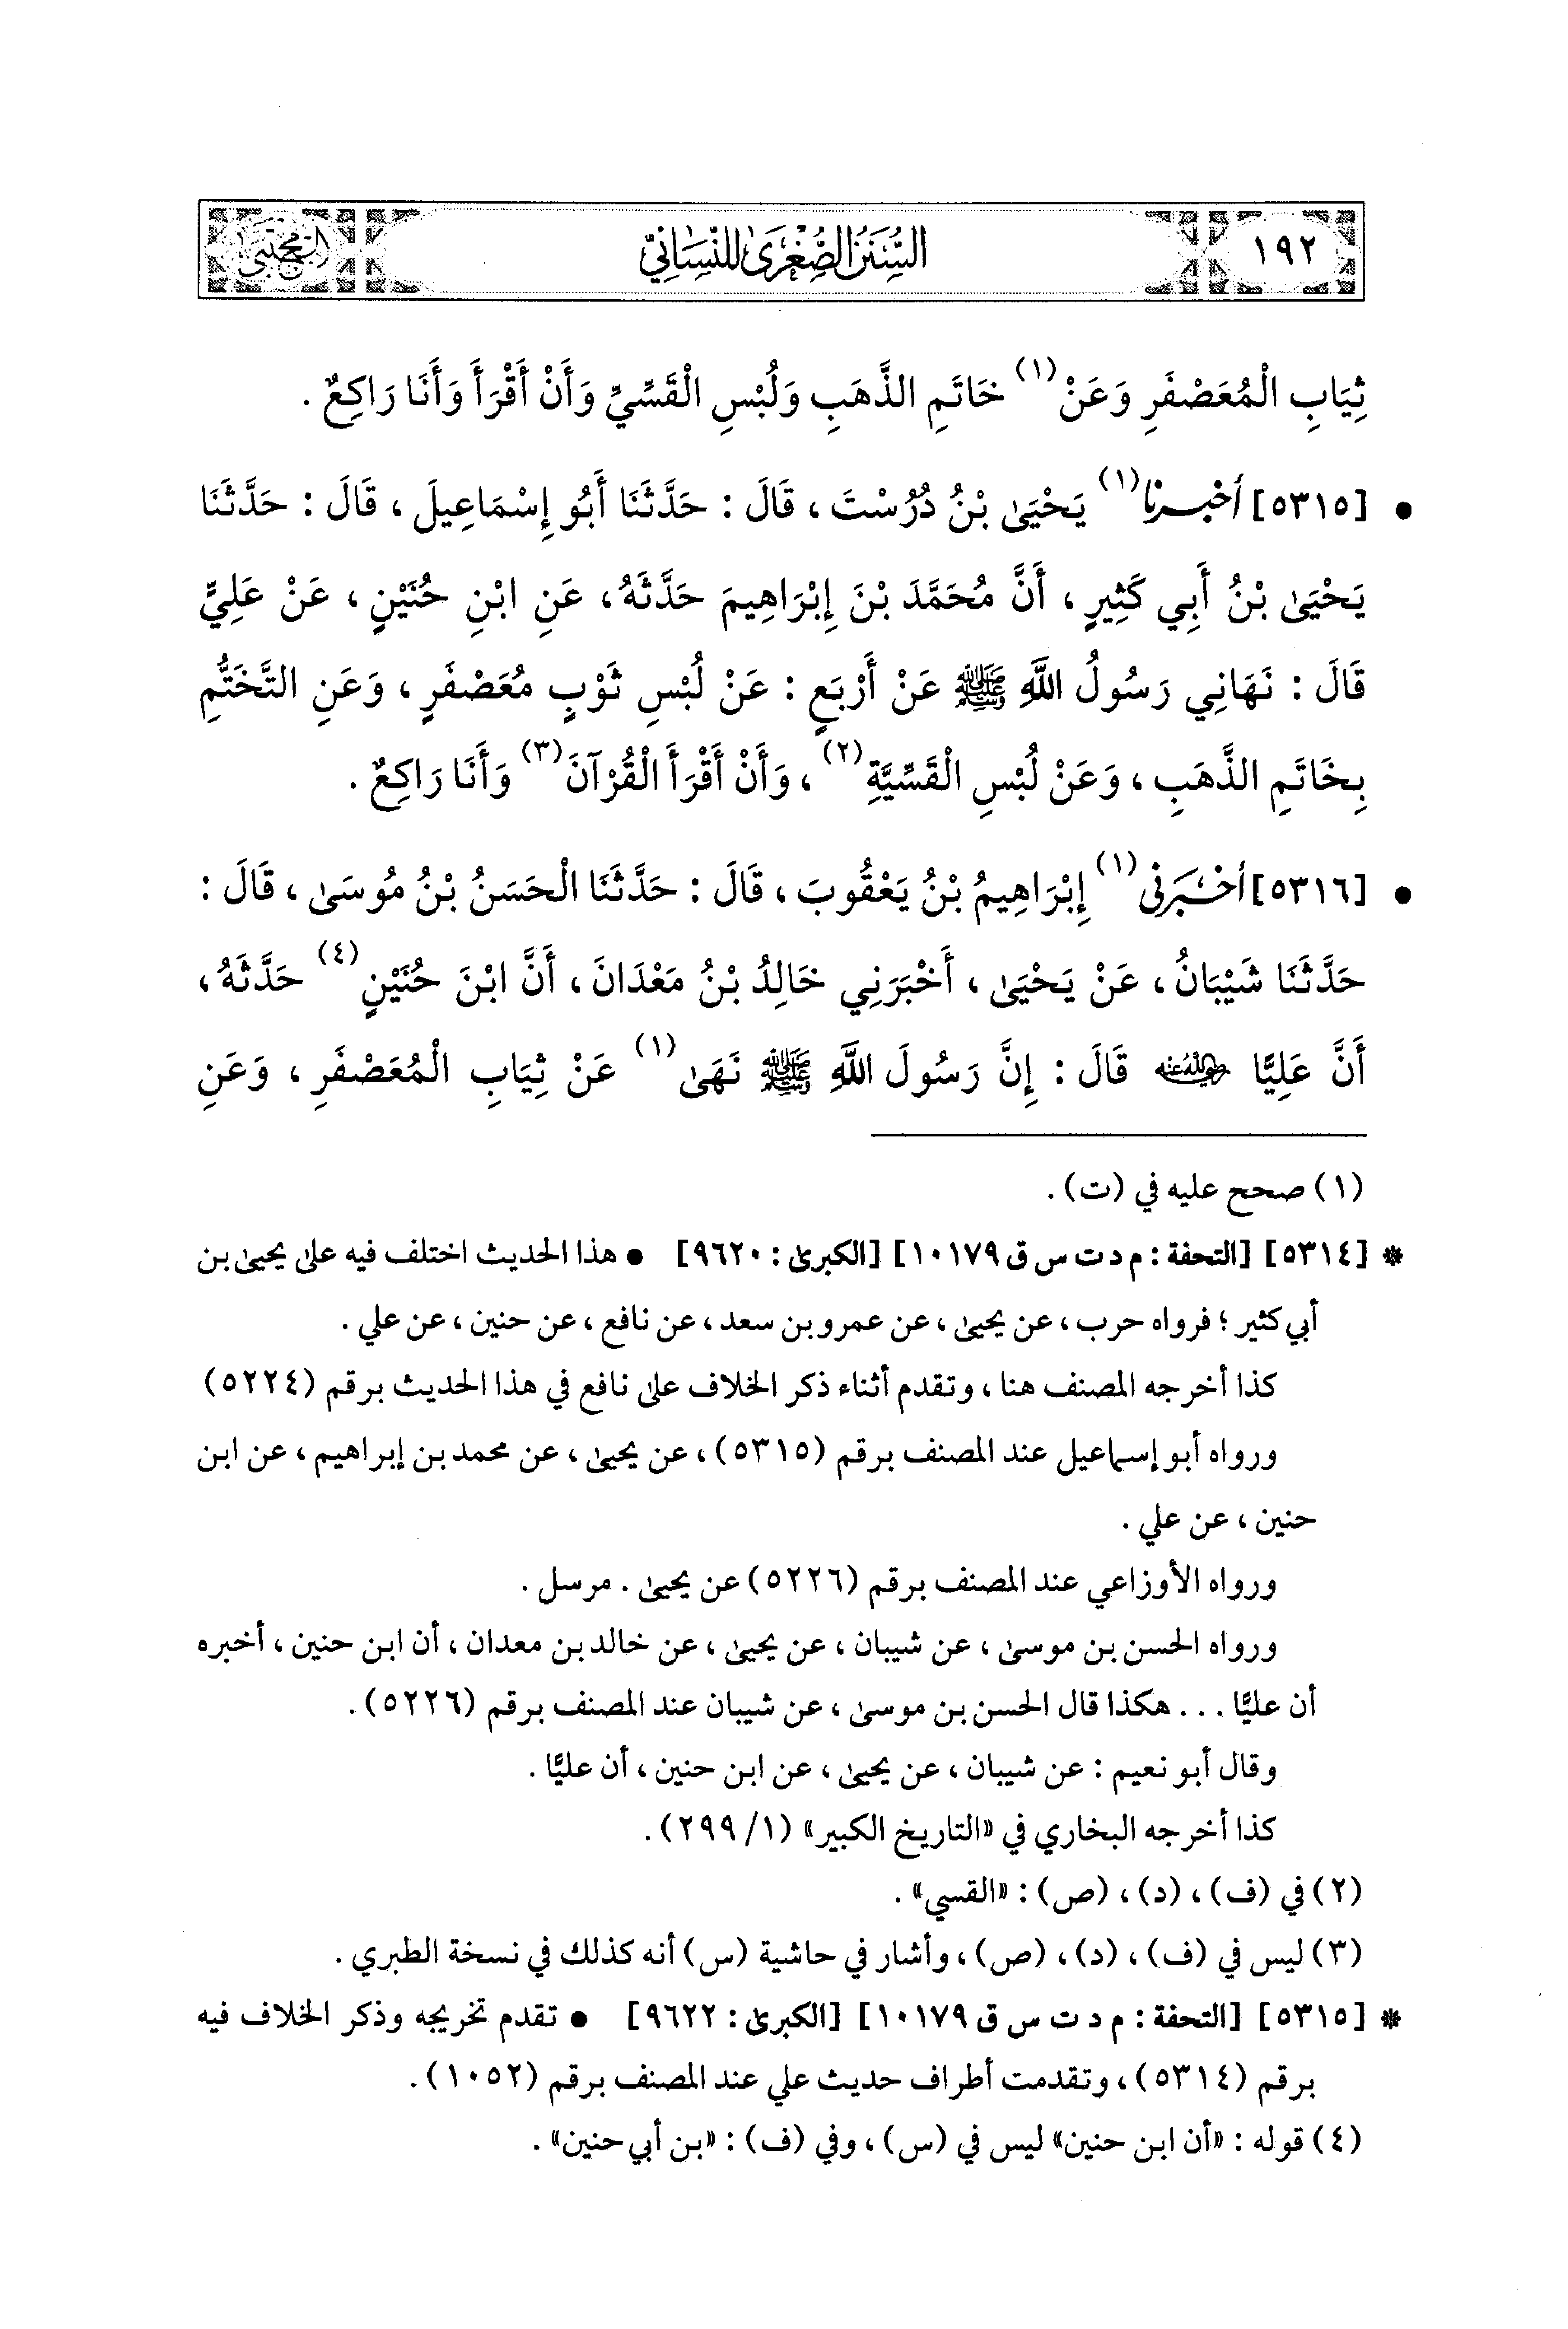 ١٩٢ السُّنَنُ الصُّغْرَىٰ لِلنَّسَائِيِّ المجتبى
ثِيَابِ الْمُعَصْفَرِ وَعَنْ(١) خَاتَمِ الذَّهَبِ وَلُبْسِ الْقَسِّيِّ وَأَنْ أَقْرَأَ وَأَنَا رَاكِعٌ .
• [٥٣١٥] أخبرنا(١) يَحْيَىٰ بْنُ دُرُسْتَ ، قَالَ : حَدَّثَنَا أَبُو إِسْمَاعِيلَ ، قَالَ : حَدَّثَنَا
يَحْيَىٰ بْنُ أَبِي كَثِيرٍ ، أَنَّ مُحَمَّدَ بْنَ إِبْرَاهِيمَ حَدَّثَهُ، عَنِ ابْنِ حُنَيْنٍ ، عَنْ عَلِيٍّ
قَالَ : نَهَانِي رَسُولُ اللَّهِ ﷺ عَنْ أَرْبَعٍ : عَنْ لُبْسِ ثَوْبٍ مُعَصْفَرٍ ، وَعَنِ التَّخَتُّمِ
بِخَاتَمِ الذَّهَبِ ، وَعَنْ لُبْسِ الْقَسِّيَّةِ(٢) ، وَأَنْ أَقْرَأَ الْقُرْآنَ(٣) وَأَنَا رَاكِعٌ .
• [٥٣١٦] أخبرني(١) إِبْرَاهِيمُ بْنُ يَعْقُوبَ ، قَالَ : حَدَّثَنَا الْحَسَنُ بْنُ مُوسَىٰ ، قَالَ :
حَدَّثَنَا شَيْبَانُ ، عَنْ يَحْيَىٰ ، أَخْبَرَنِي خَالِدُ بْنُ مَعْدَانَ ، أَنَّ ابْنَ حُنَيْنٍ(٤) حَدَّثَهُ ،
أَنَّ عَلِيًّا رضي الله عنه قَالَ : إِنَّ رَسُولَ اللَّهِ ﷺ نَهَىٰ(١) عَنْ ثِيَابِ الْمُعَصْفَرِ ، وَعَنِ
(١) صحح عليه في (ت) .
* [٥٣١٤] [التحفة : م د ت س ق ١٠١٧٩] [الكبرىٰ : ٩٦٢٠] • هذا الحديث اختلف فيه علىٰ يحيىٰ بن
أبي كثير ؛ فرواه حرب ، عن يحيىٰ ، عن عمرو بن سعد ، عن نافع ، عن حنين ، عن علي .
كذا أخرجه المصنف هنا ، وتقدم أثناء ذكر الخلاف علىٰ نافع في هذا الحديث برقم (٥٢٢٤)
ورواه أبو إسماعيل عند المصنف برقم (٥٣١٥) ، عن يحيىٰ ، عن محمد بن إبراهيم ، عن ابن
حنين ، عن علي .
ورواه الأوزاعي عند المصنف برقم (٥٢٢٦) عن يحيىٰ . مرسل .
ورواه الحسن بن موسىٰ ، عن شيبان ، عن يحيىٰ ، عن خالد بن معدان ، أن ابن حنين ، أخبره
أن عليًّا . . . هكذا قال الحسن بن موسىٰ ، عن شيبان عند المصنف برقم (٥٢٢٦) .
وقال أبو نعيم : عن شيبان ، عن يحيىٰ ، عن ابن حنين ، أن عليًّا .
كذا أخرجه البخاري في «التاريخ الكبير» (١/ ٢٩٩) .
(٢) في (ف) ، (د) ، (ص) : «القسي» .
(٣) ليس في (ف) ، (د) ، (ص) ، وأشار في حاشية (س) أنه كذلك في نسخة الطبري .
* [٥٣١٥] [التحفة : م د ت س ق ١٠١٧٩] [الكبرىٰ : ٩٦٢٢] • تقدم تخريجه وذكر الخلاف فيه
برقم (٥٣١٤) ، وتقدمت أطراف حديث علي عند المصنف برقم (١٠٥٢) .
(٤) قوله : «أن ابن حنين» ليس في (س) ، وفي (ف) : «بن أبي حنين» .